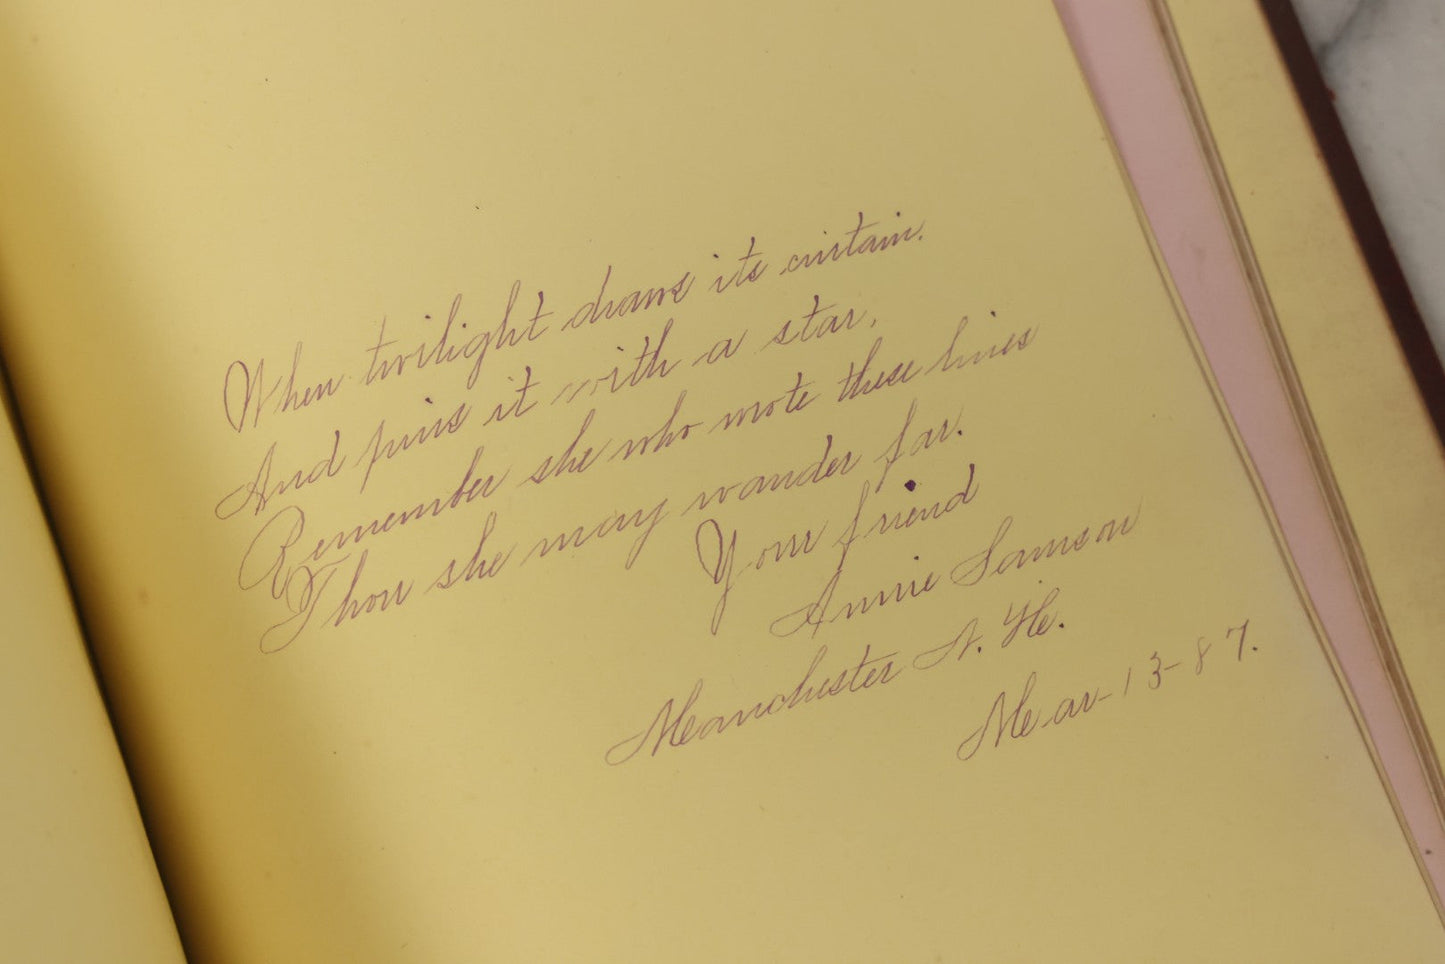 When twilight draws its curtain.
And pins it with a star,
Remember she who wrote these lines
Thou she may wander far.
Your friend
Annie Samson
Manchester N. H.
Mar-13-87.